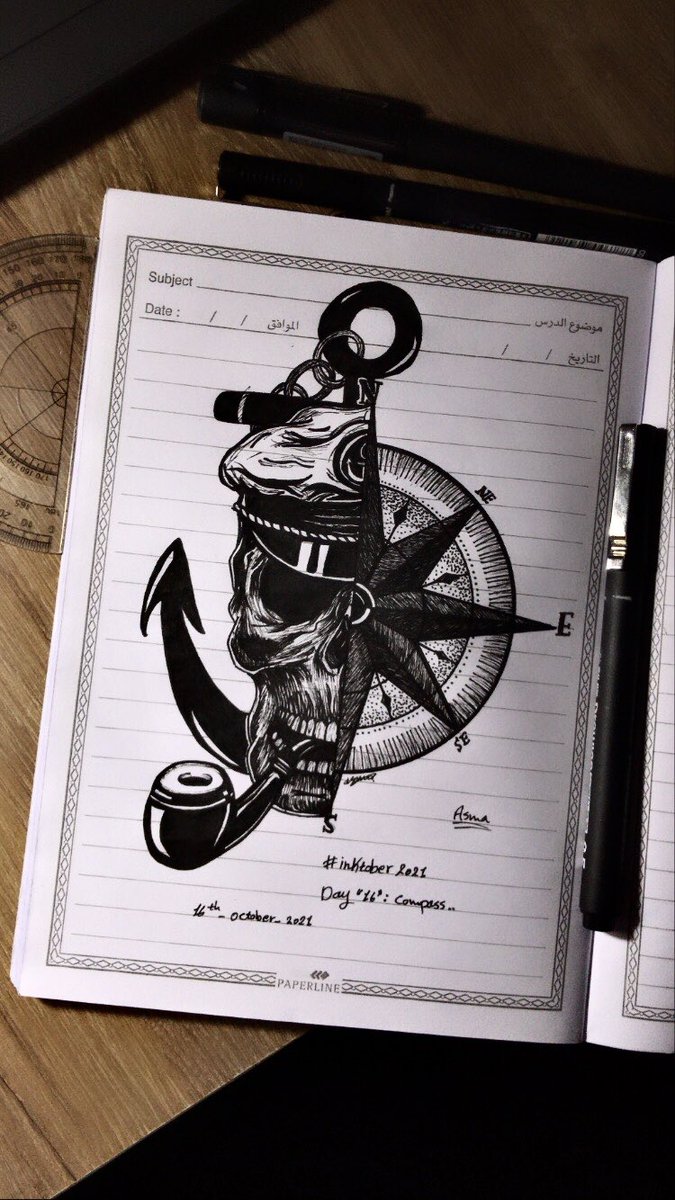 Subject
موضوع الدرس
Date : / / الموافق
التاريخ / /
N
NE
E
SE
S
Asma
#inKtober 2021
Day "16" : Compass..
16th - october - 2021
PAPERLINE